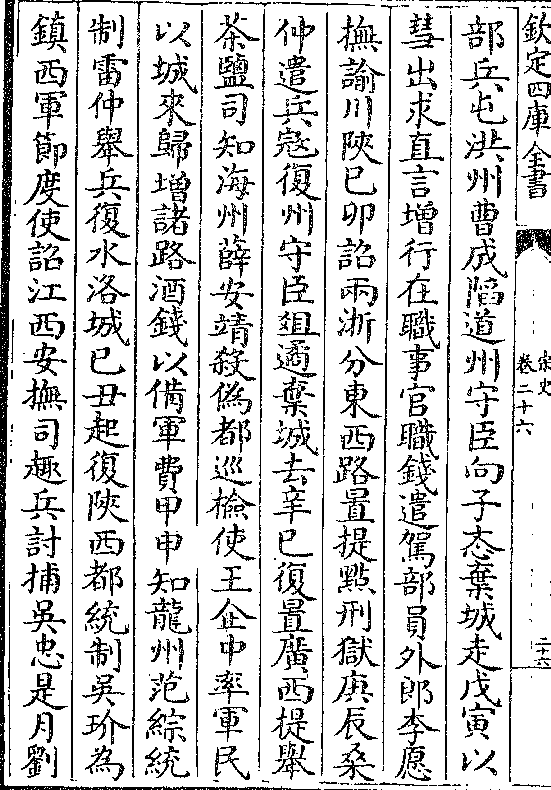 欽定四庫全書
宋史
卷二十六
二十六
部兵屯洪州曹成陷道州守臣向子忞棄城走戊寅以
彗出求直言增行在職事官職錢遣駕部員外郎李愿
撫諭川陜已卯詔兩浙分東西路置提㸃刑獄庚辰桑
仲遣兵宼復州守臣俎遹棄城去辛巳復置廣西提舉
茶鹽司知海州薛安靖殺偽都巡檢使王企中率軍民
以城來歸増諸路酒錢以備軍費甲申知龍州范綜統
制雷仲舉兵復水洛城已丑起復陜西都統制吳玠為
鎮西軍節度使詔江西安撫司趣兵討捕吳忠是月劉